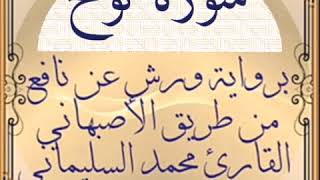 سورة نوح
برواية ورش عن نافع
من طريق الأصبهاني
القارئ محمد السليماني